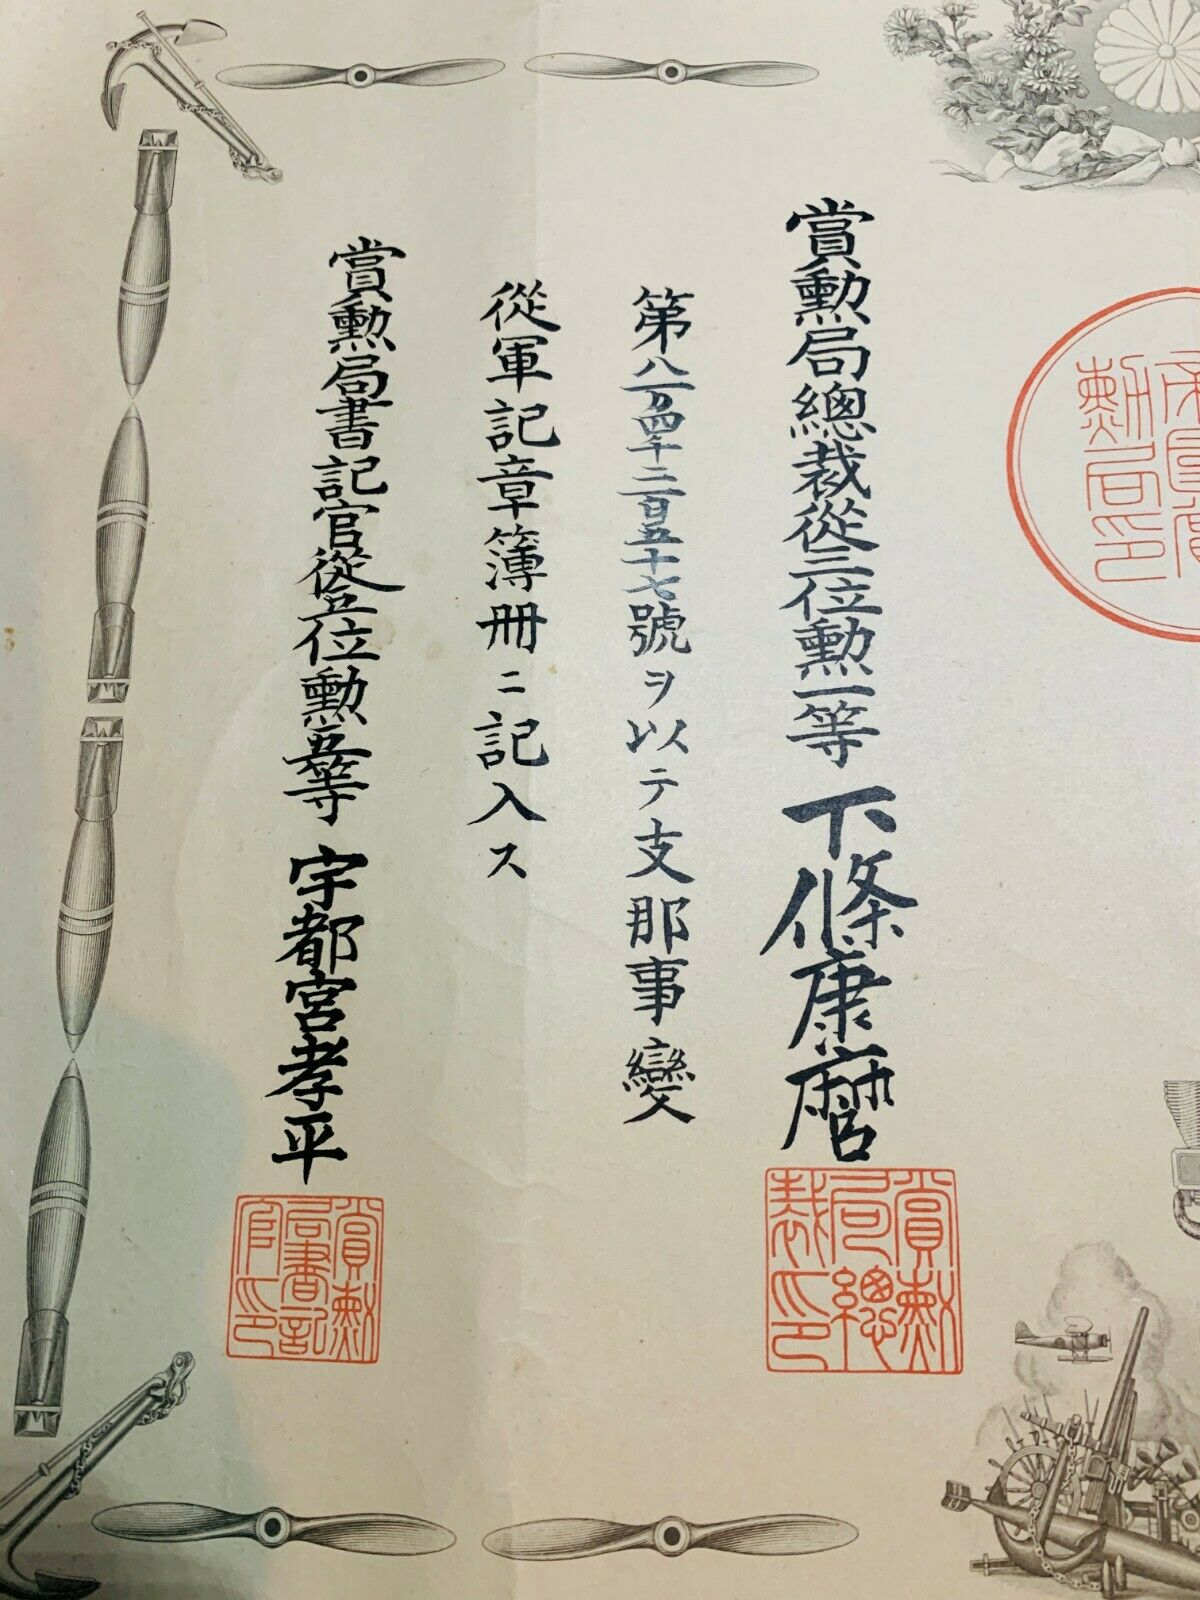 勲局印
賞勲局總裁從三位勲一等 下條康麿
賞勲局總裁印
第八万四千二百五十七號ヲ以テ支那事變
從軍記章簿冊ニ記入ス
賞勲局書記官從五位勲五等 宇都宮孝平
賞勲局書記官印